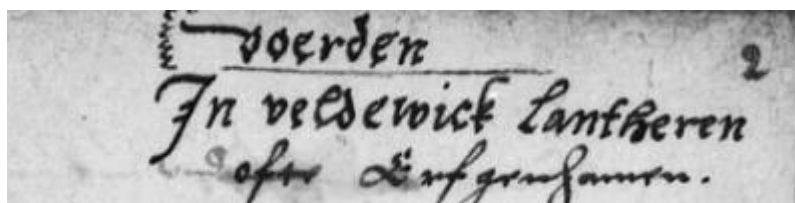 voerden
2
In veldewick lantheren
ofte Erfgenhamen.